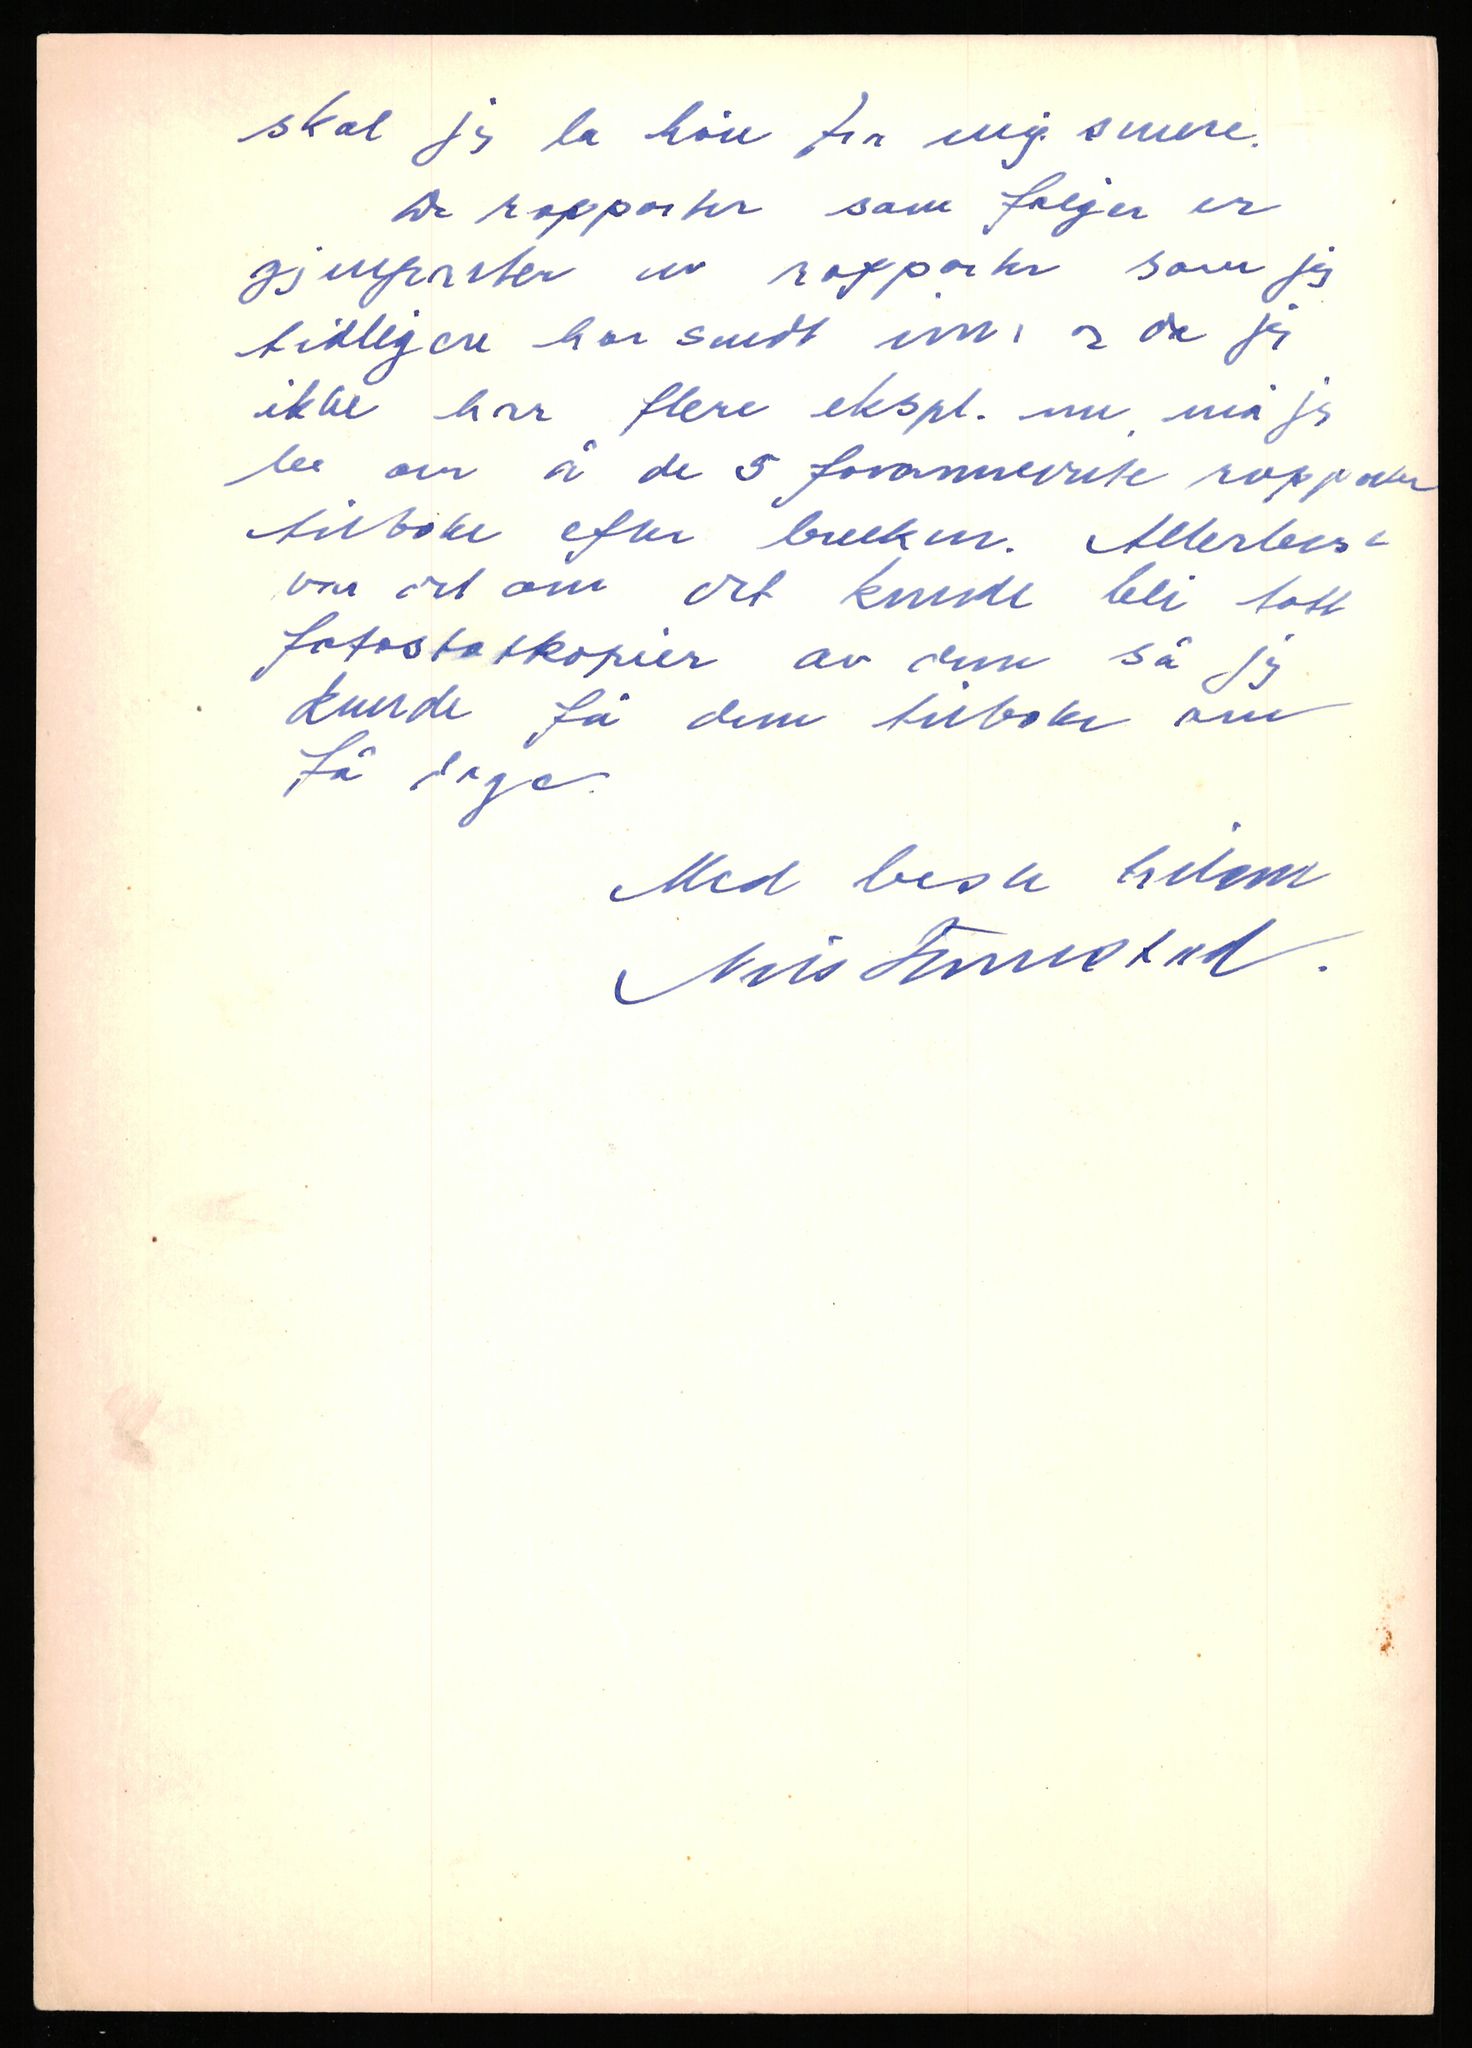 skal jeg la høre fra mig senere.
De rapporter som følger er
gjenparter av rapporter som jeg
tidligere har sendt inn, og da jeg
ikke har flere ekspl. nu, må jeg
be om å de 5 forannevnte rapporter
tilbake efter bruken. Allerbest
var det om det kunde bli tatt
fotostatkopier av dem så jeg
kunde få dem tilbake om
få dage.
Med beste hilsen
Nils